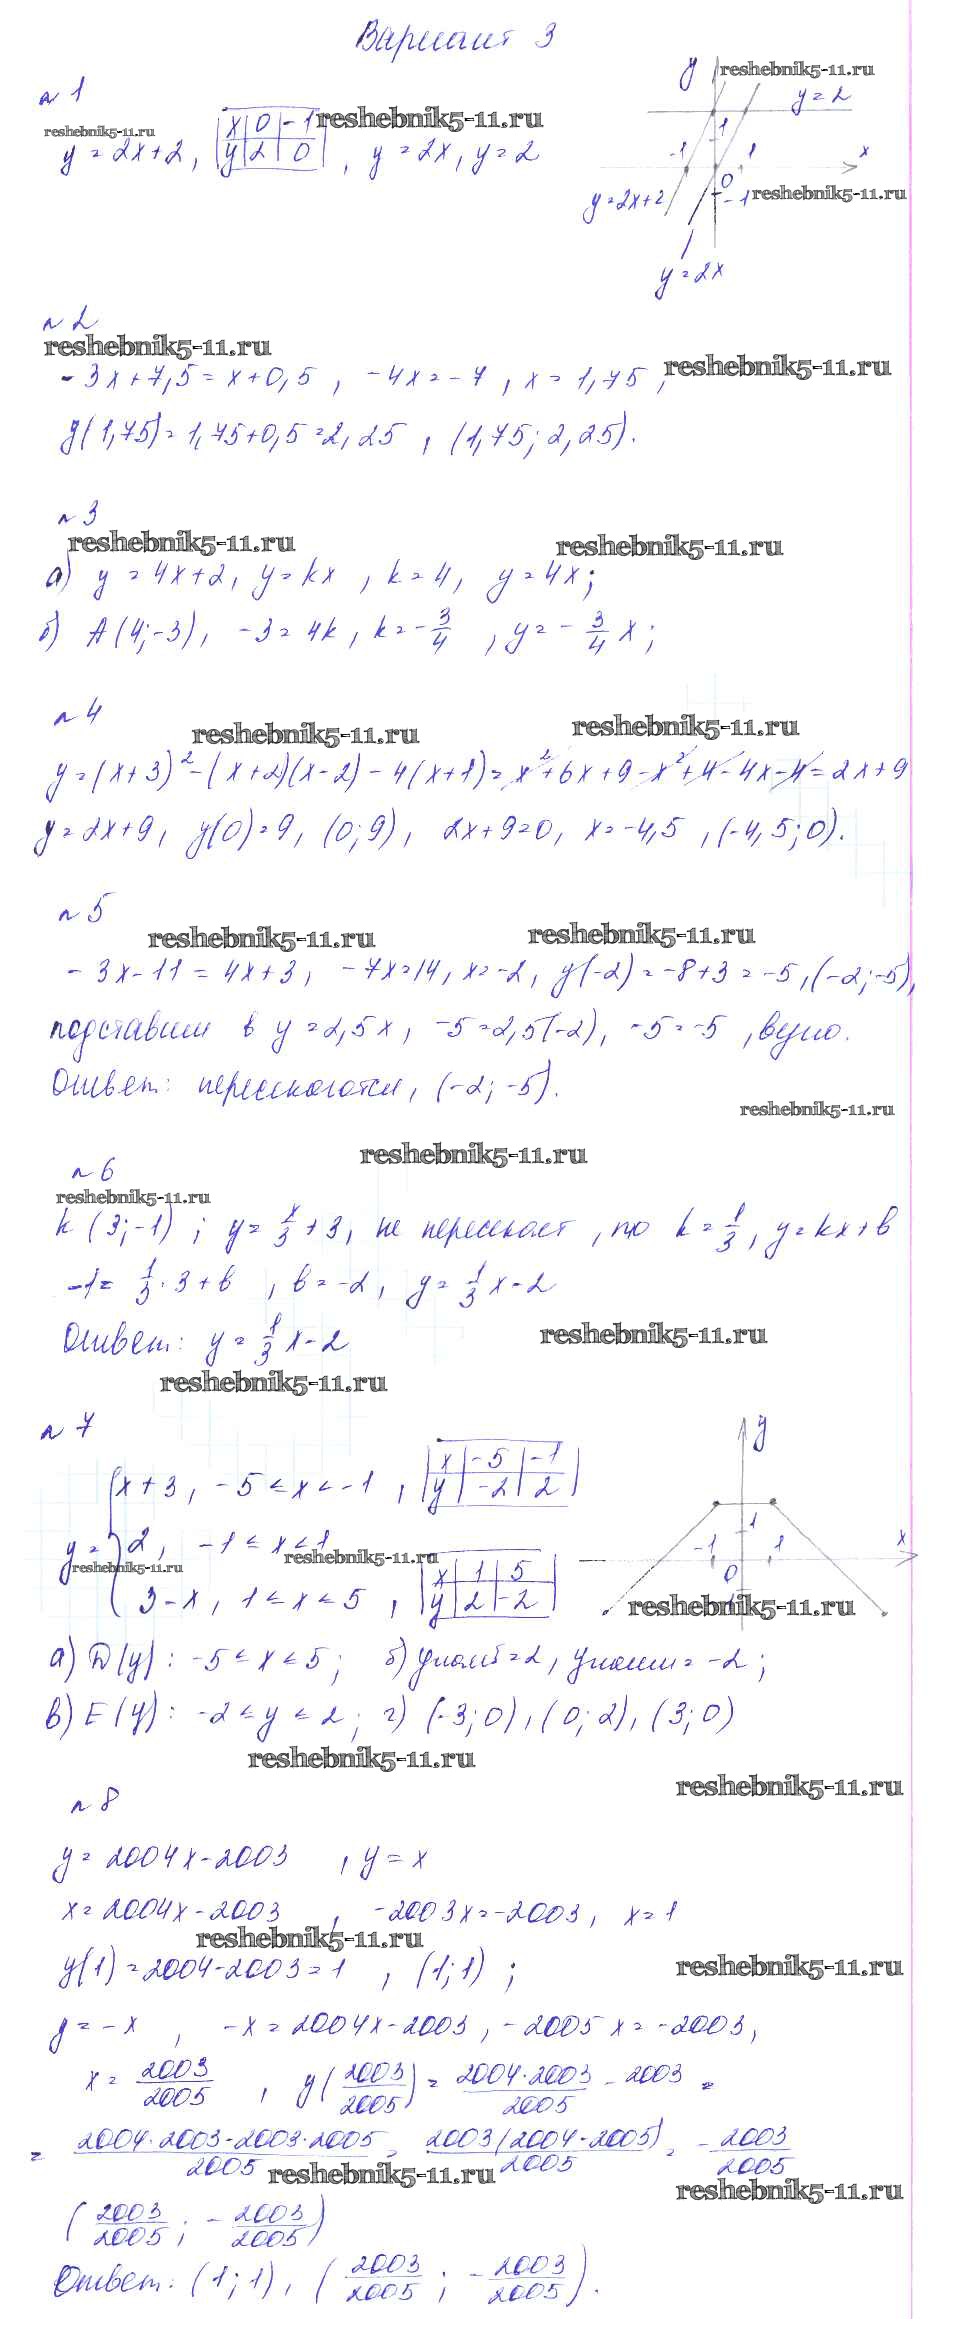 Вариант 3
y
reshebnik5-11.ru
n 1
y = 2
reshebnik5-11.ru
x 0 -1
reshebnik5-11.ru
1
y = 2x+2, y 2 0 , y = 2x, y = 2
-1 1 x
0
y = 2x+2
-1
reshebnik5-11.ru
y = 2x
n 2
reshebnik5-11.ru
reshebnik5-11.ru
-3x+7,5 = x+0,5 , -4x = -7 , x = 1,75 ,
y(1,75) = 1,75+0,5 = 2,25 , (1,75; 2,25).
n 3
reshebnik5-11.ru
reshebnik5-11.ru
а) y = 4x+2, y = kx , k = 4, y = 4x;
б) A(4;-3), -3 = 4k, k = -3/4 , y = -3/4 x;
n 4
reshebnik5-11.ru
reshebnik5-11.ru
y = (x+3)² - (x+2)(x-2) - 4(x+1) = x²+6x+9-x²+4-4x-4 = 2x+9
y = 2x+9, y(0) = 9, (0; 9), 2x+9=0, x = -4,5 , (-4,5; 0).
n 5
reshebnik5-11.ru
reshebnik5-11.ru
-3x-11 = 4x+3, -7x = 14, x = -2, y(-2) = -8+3 = -5, (-2; -5),
подставим в y = 2,5x, -5 = 2,5(-2), -5 = -5 , верно.
Ответ: пересекаются, (-2; -5).
reshebnik5-11.ru
reshebnik5-11.ru
n 6
reshebnik5-11.ru
k (3;-1) ; y = x/3 + 3, не пересекает , то k = 1/3, y = kx+b
-1 = 1/3 · 3 + b , b = -2, y = 1/3 x - 2
Ответ: y = 1/3 x - 2
reshebnik5-11.ru
reshebnik5-11.ru
n 7
y
x+3, -5 ≤ x ≤ -1 , x -5 -1
y -2 2
1
y = 2, -1 ≤ x ≤ 1
-1 1 x
reshebnik5-11.ru
reshebnik5-11.ru
0
3-x, 1 ≤ x ≤ 5 , x 1 5
y 2 -2
reshebnik5-11.ru
а) D(y): -5 ≤ x ≤ 5; б) yнаиб = 2, yнаим = -2;
в) E(y): -2 ≤ y ≤ 2; г) (-3; 0), (0; 2), (3; 0)
reshebnik5-11.ru
reshebnik5-11.ru
n 8
y = 2004x-2003 , y = x
x = 2004x-2003 , -2003x = -2003, x = 1
reshebnik5-11.ru
reshebnik5-11.ru
y(1) = 2004-2003 = 1 , (1; 1) ;
y = -x , -x = 2004x-2003, -2005x = -2003,
x = 2003/2005 , y(2003/2005) = 2004·2003/2005 - 2003 =
= 2004·2003-2003·2005/2005 = 2003(2004-2005)/2005 = -2003/2005
reshebnik5-11.ru
reshebnik5-11.ru
(2003/2005; -2003/2005)
Ответ: (1; 1), (2003/2005; -2003/2005).